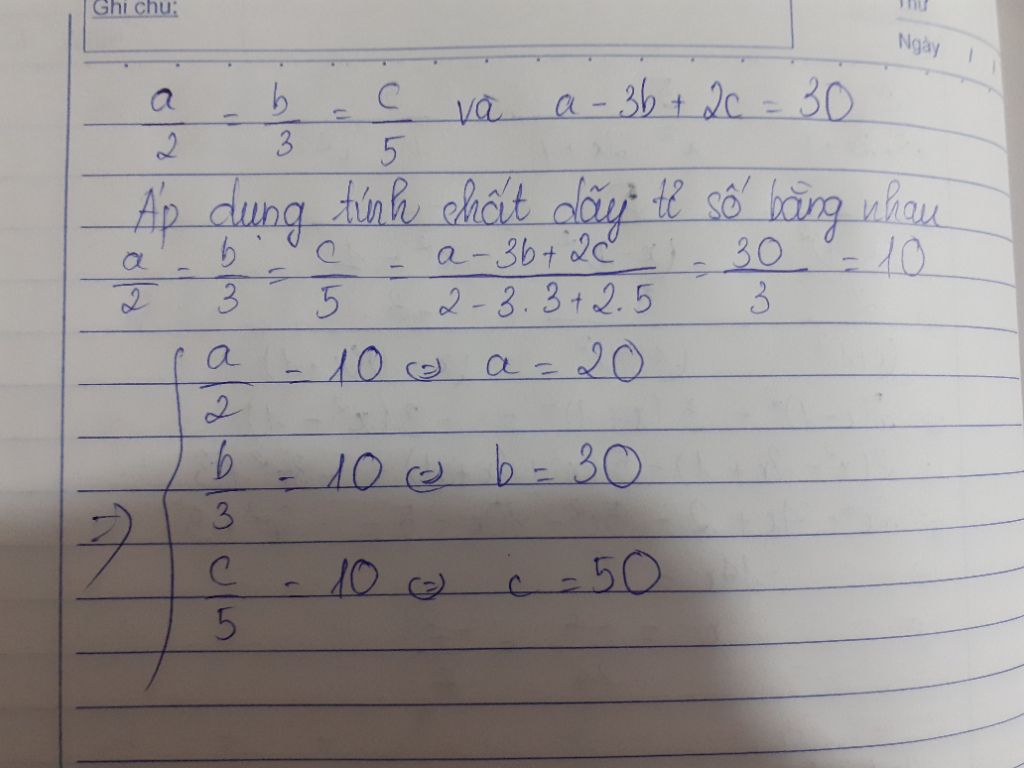 Ghi chú:
Thứ
Ngày / /
a/2 = b/3 = c/5 và a - 3b + 2c = 30
Áp dụng tính chất dãy tỉ số bằng nhau
a/2 = b/3 = c/5 = (a - 3b + 2c)/(2 - 3.3 + 2.5) = 30/3 = 10
a/2 = 10 ⇔ a = 20
b/3 = 10 ⇔ b = 30
=> c/5 = 10 ⇔ c = 50